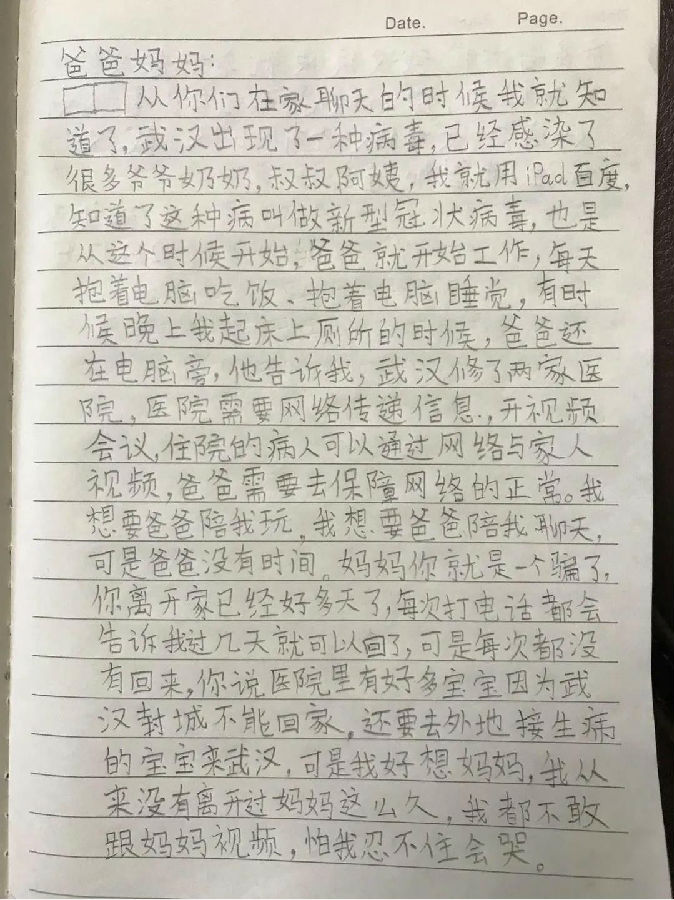 Date. Page.
爸爸妈妈:
从你们在家聊天的时候我就知
道了,武汉出现了一种病毒,已经感染了
很多爷爷奶奶,叔叔阿姨,我就用iPad百度,
知道了这种病叫做新型冠状病毒,也是
从这个时候开始,爸爸就开始工作,每天
抱着电脑吃饭、抱着电脑睡觉,有时
候晚上我起床上厕所的时候,爸爸还
在电脑旁,他告诉我,武汉修了两家医
院,医院需要网络传递信息,开视频
会议,住院的病人可以通过网络与家人
视频,爸爸需要去保障网络的正常。我
想要爸爸陪我玩,我想要爸爸陪我聊天,
可是爸爸没有时间。妈妈你就是一个骗子,
你离开家已经好多天了,每次打电话都会
告诉我过几天就可以回了,可是每次都没
有回来,你说医院里有好多宝宝因为武
汉封城不能回家,还要去外地接生病
的宝宝来武汉,可是我好想妈妈,我从
来没有离开过妈妈这么久,我都不敢
跟妈妈视频,怕我忍不住会哭。